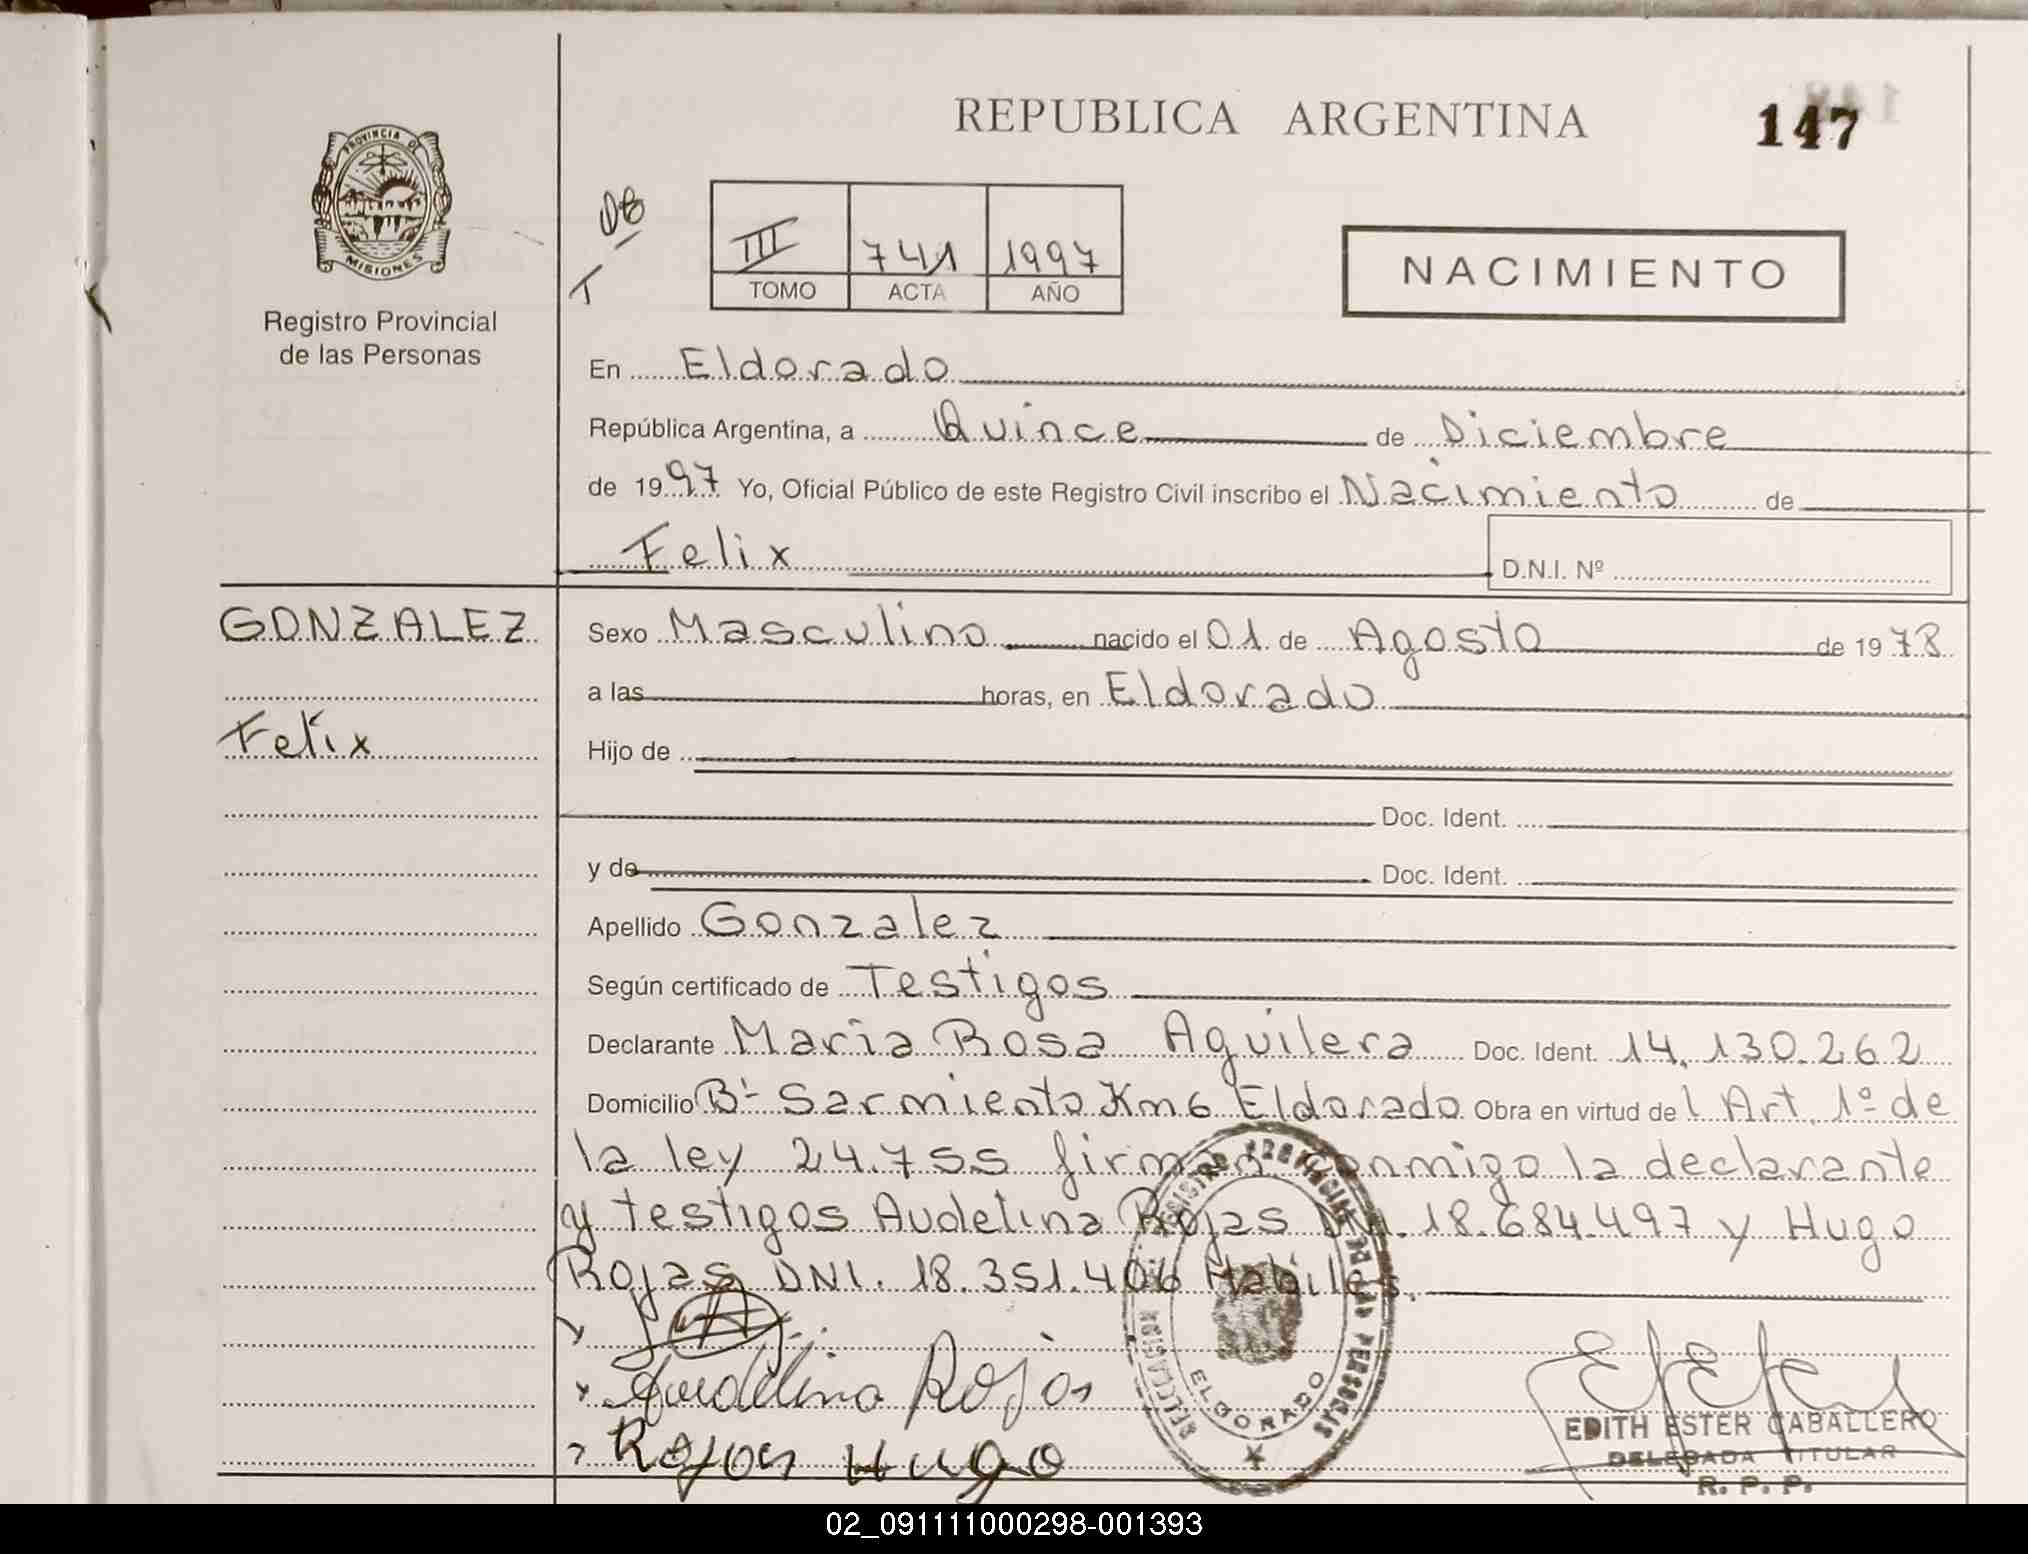 REPUBLICA ARGENTINA
147
PROVINCIA DE
MISIONES
Registro Provincial
de las Personas
III 741 1997
TOMO ACTA AÑO
NACIMIENTO
En Eldorado
República Argentina, a Quince de Diciembre
de 1997 Yo, Oficial Público de este Registro Civil inscribo el Nacimiento de
Felix
D.N.I. Nº
GONZALEZ
Felix
Sexo Masculino nacido el 01 de Agosto de 1978
a las horas, en Eldorado
Hijo de
Doc. Ident.
y de Doc. Ident.
Apellido Gonzalez
Según certificado de Testigos
Declarante Maria Rosa Aguilera Doc. Ident. 14.130.262
Domicilio Bº Sarmiento Km 6 Eldorado Obra en virtud del Art. 1º de
la ley 24.755 firman conmigo la declarante
y testigos Audelina Rojas DNI. 18.684.497 y Hugo
Rojas DNI. 18.351.406 Habiles.
Audelina Rojas
Rojas Hugo
ELDORADO
EDITH ESTER CABALLERO
DELEGADA TITULAR
R. P. P.
02_091111000298-001393